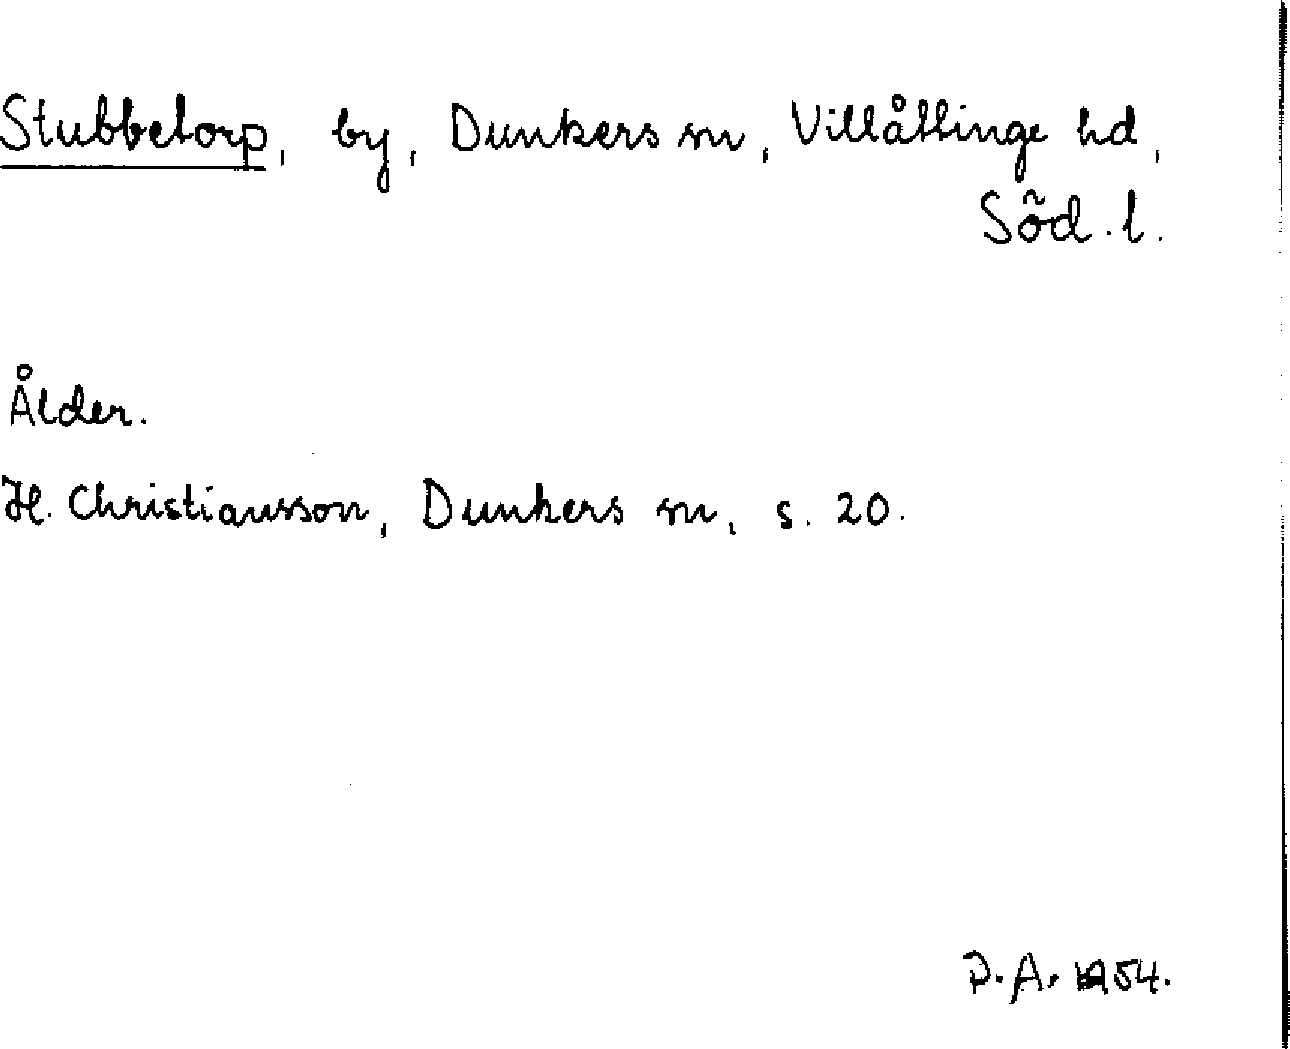 Stubbetorp, by, Dunkers sn, Villåttinge hd,
Söd. l.
Ålder.
H. Christiansson, Dunkers sn, s. 20.
D.A. 1954.